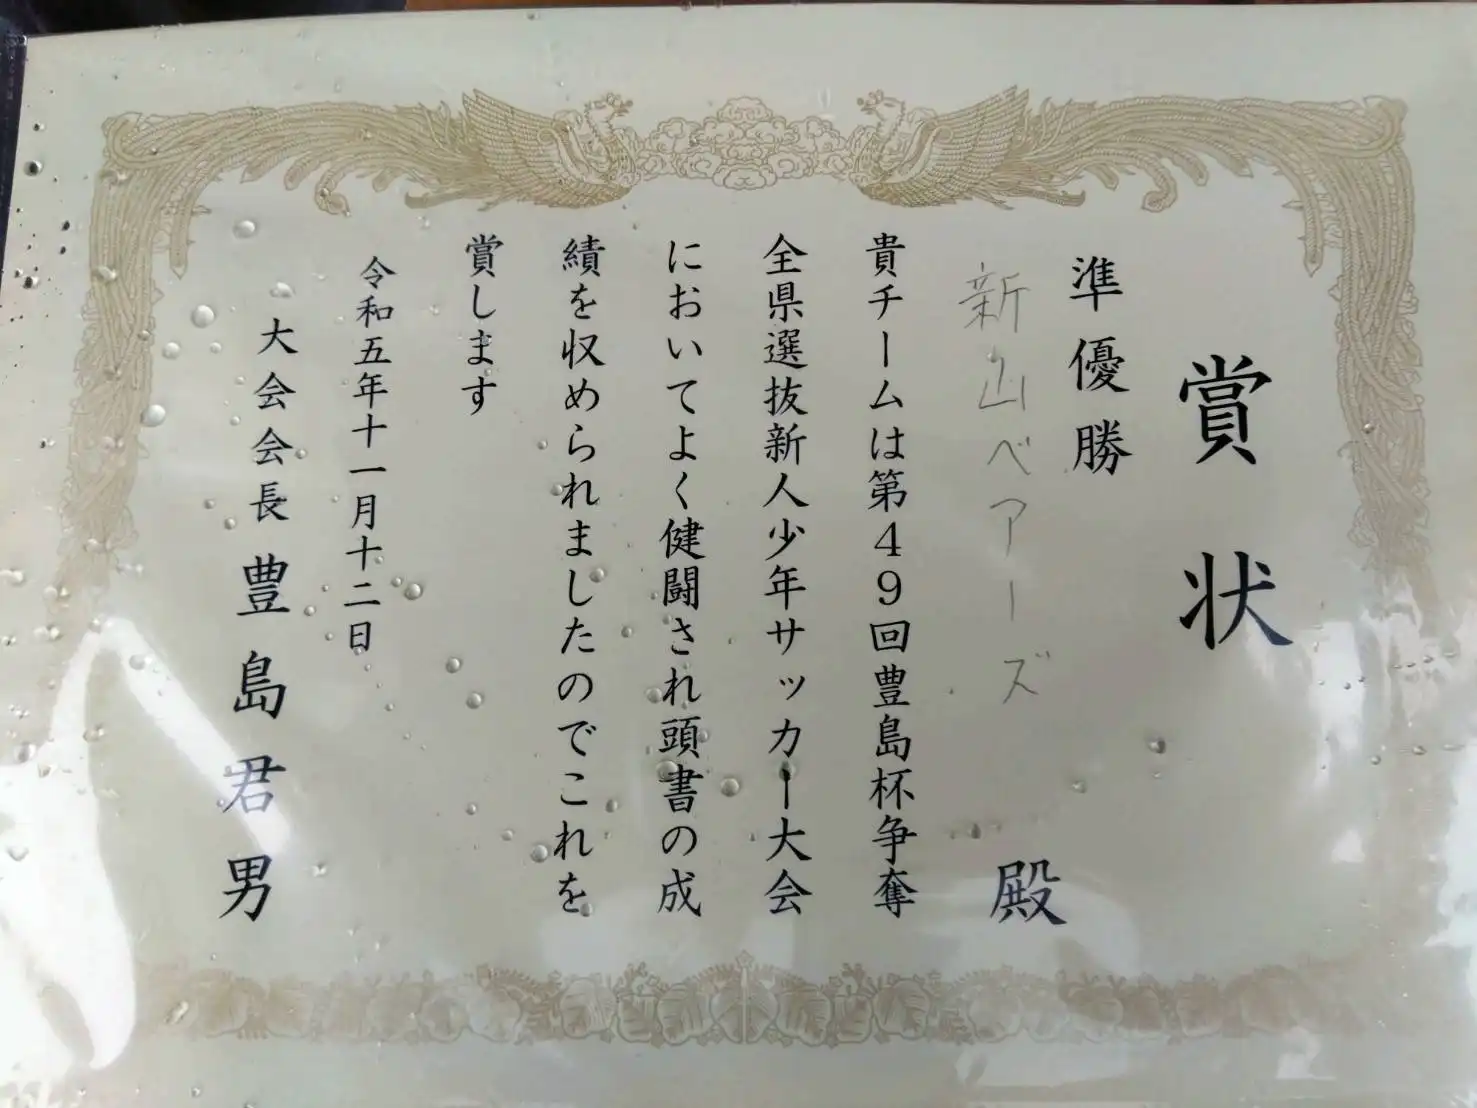 賞状
準優勝
新山ベアーズ 殿
貴チームは第49回豊島杯争奪
全県選抜新人少年サッカー大会
においてよく健闘され頭書の成
績を収められましたのでこれを
賞します
令和五年十一月十二日
大会会長 豊島君男